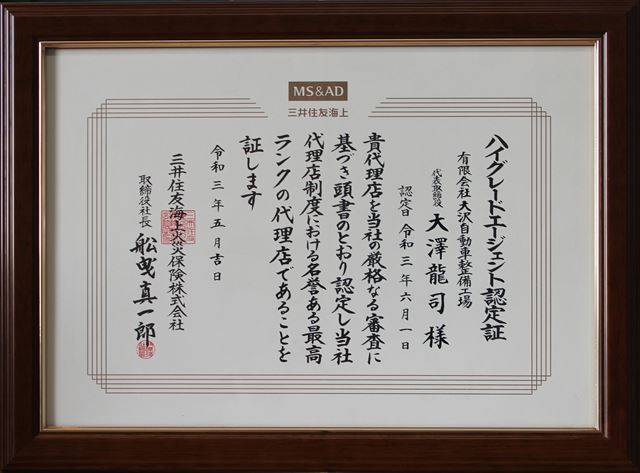 MS&AD
三井住友海上
ハイグレードエージェント認定証
有限会社大沢自動車整備工場
代表取締役 大澤龍司様
認定日 令和三年六月一日
貴代理店を当社の厳格なる審査に
基づき頭書のとおり認定し当社
代理店制度における名誉ある最高
ランクの代理店であることを
証します
令和三年五月吉日
三井住友海上火災保険株式会社
取締役社長 舩曵真一郎